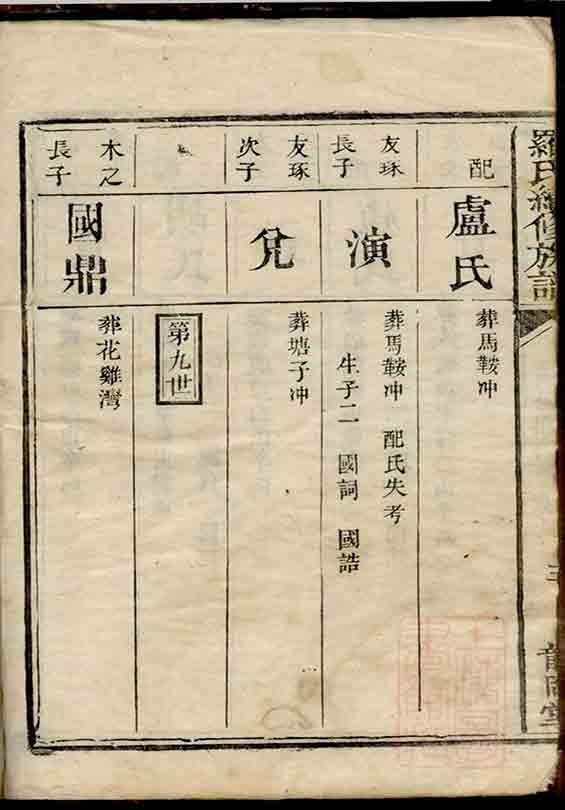 羅氏續修族譜
配
盧氏
葬馬鞍冲
友琢
長子
演
葬馬鞍冲 配氏失考
生子二 國詞 國誥
友琢
次子
兌
葬塘子冲
第九世
木之
長子
國鼎
葬花雞灣
三